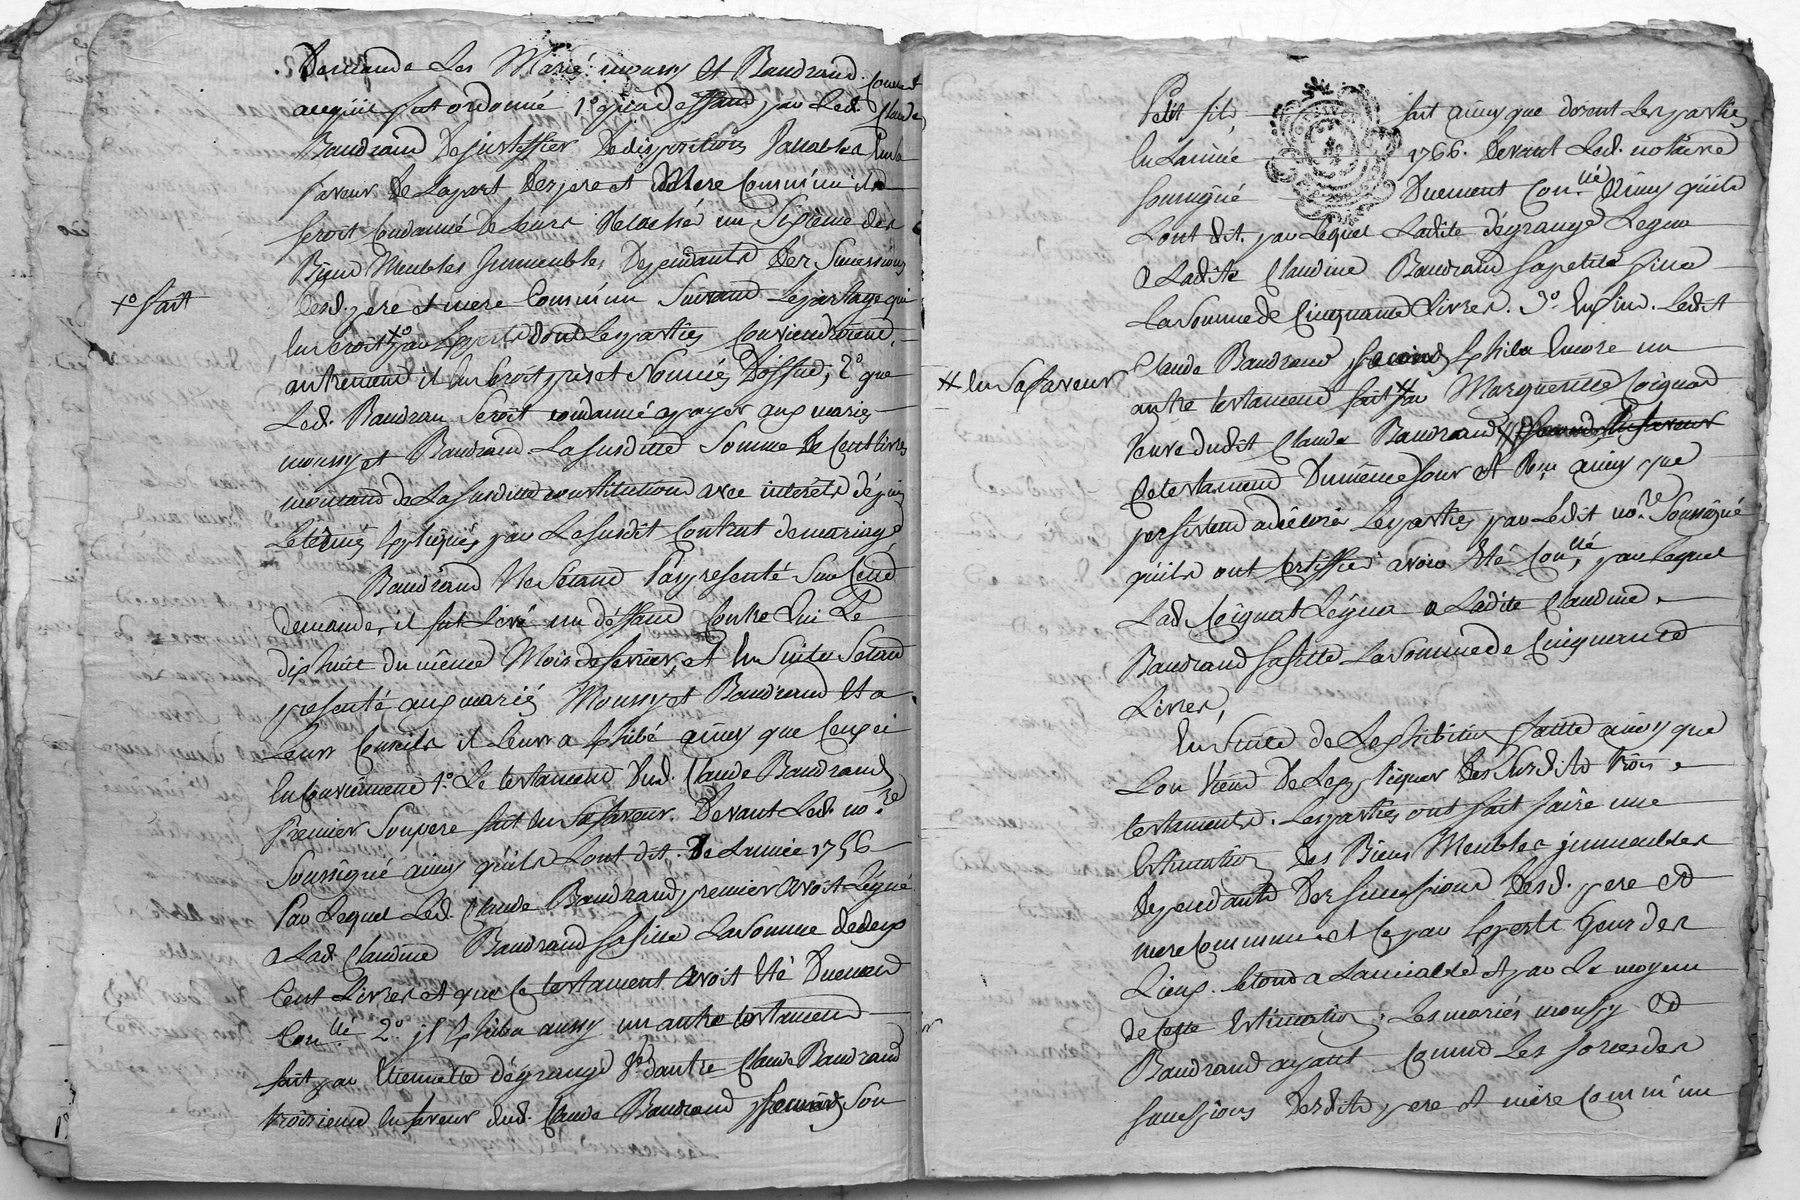 demande les Mariés moussy et Baudrand
acequil fut ordonné 1° qu'a deffaud par led. Claude
Baudrand De justiffier De dispositions Vallables En sa
faveur De Lapart Des pere et Mere Commun il
seroit Condamné De leurs Relaché un Sixieme des
Biens Meubles Jmmeubles Dependants Des Successions
desd. pere et mere Commun Suivand Lepartage qui
En seroit par Experts dond Les parties Conviendroient,
x° fait
autrement il En seroit pris et Nommés D'office, 2° que
Led. Baudran Seroit condamné apayer aux mariés
moussy et Baudrand La susditte Somme De Cent livres
montand de La susditte constitution avec interets depuis
Leterme Expliqués par Le susdit Contrat de mariage
Baudrand Ne S'etand Pas presenté Sur Cette
demande, il fut Levé un deffaud Contre Lui Le
dix huit du même Mois de fevrier, et En Suite S'etand
presenté aux mariés Moussy et Baudrand Et a
Leurs Conseils il Leurs a Exhibé ainsy que Ceux ci
En Conviennent 1° Le testament Dud. Claude Baudrand
premier Son pere fait En Sa faveur. Devant Led. no.re
Soussigné ainsy qu'ils Lont dit. De Lannée 1756
Par Lequel Led. Claude Baudrand premier avoit Légué
a Lad. Claudine Baudrand Sa fille La Somme de deux
Cent Livres et que Ce testament avoit Eté Duement
Con.llé 2° il Exhiba aussy un autre testament
fait par Etiennette dégrange V.e d'autre Claude Baudrand
troisieme En faveur dud. Claude Baudrand second Son
Petit fils, fait ainsy que disent Les parties
En Lannée 1766. Devant Led. notaire
Soussigné Duement Con.llé Ainsy qu'ils
Lont dit. par Lequel Ladite dégrange Legua
a Ladite Claudine Baudrand Sa petite fille
La Somme de Cinquante Livres. 3° Enfin. Ledit
Claude Baudrand second Exhiba Encore un
# En Sa faveur
autre testament fait # par Marguerite Coignat
Veuve dudit Claude Baudrand
Ce testament Du même Jour et An, ainsy que
persistend adéclarer Les parties par Ledit no.re Soussigné
qu'ils ont Certiffié avoir Eté Con.llé, par Lequel
Lad. Coignat Légua a Ladite Claudine
Baudrand Sa fille La Somme de Cinquante
Livres,
En Suite de Lexhibition faitte ainsy que
L'on Vient De Lexpliquer Des Susdits trois
testaments. Les parties ont fait faire une
Estimation Des Biens Meubles jmmeubles
Dependants Des successions Desd. pere et
mere Commun et Ce par Experts Gens des
Lieux. Et ond a Lamiable et par Le moyen
de Cette Estimation, Les mariés moussy et
Baudrand ayant Connu Les forces des
successions Desdits pere et mere Comm'un